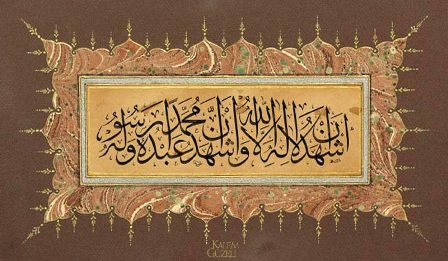 اشهد ان لا اله الا الله واشهد ان محمدا عبده ورسوله
KALEM
GÜZELİ